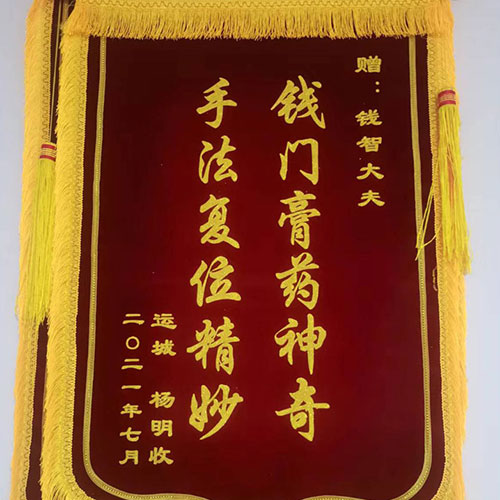 赠：钱智大夫
钱门膏药神奇
手法复位精妙
运城 杨明收
二〇二一年七月